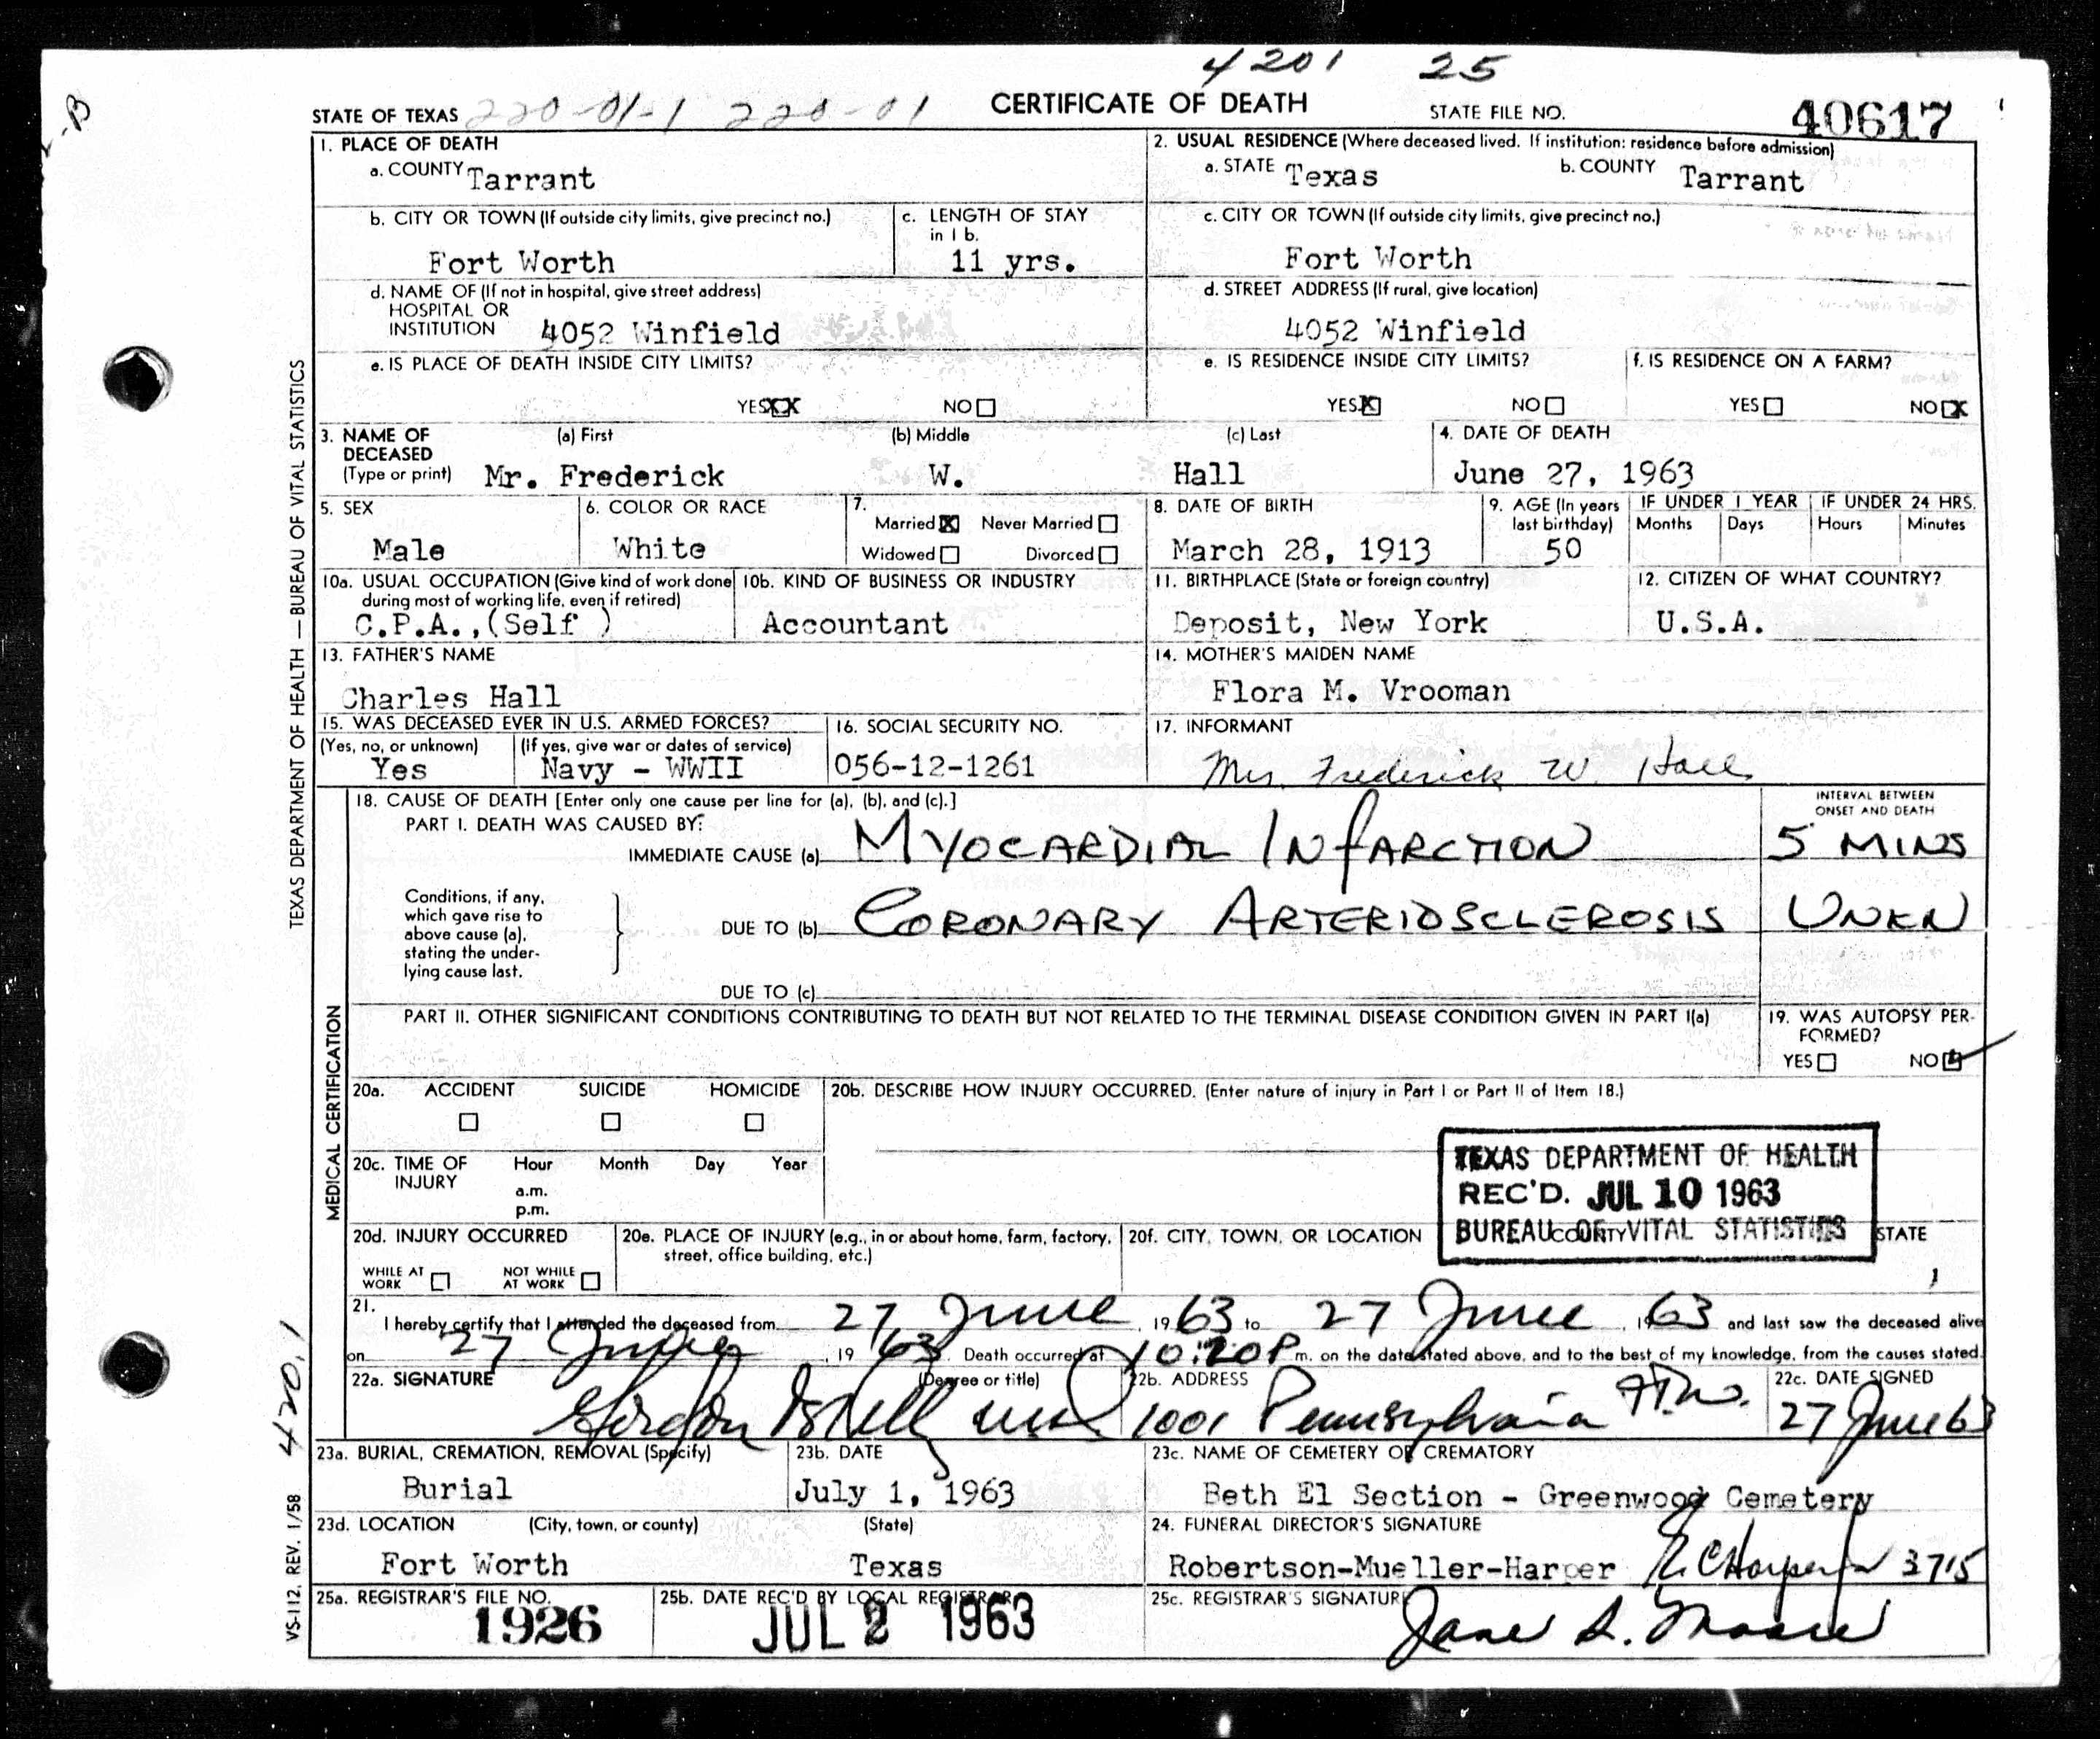 4201 25
STATE OF TEXAS 220-01-1 220-01 CERTIFICATE OF DEATH STATE FILE NO. 40617
1. PLACE OF DEATH
a. COUNTY Tarrant
2. USUAL RESIDENCE (Where deceased lived. If institution: residence before admission)
a. STATE Texas b. COUNTY Tarrant
b. CITY OR TOWN (If outside city limits, give precinct no.)
Fort Worth
c. LENGTH OF STAY
in 1 b.
11 yrs.
c. CITY OR TOWN (If outside city limits, give precinct no.)
Fort Worth
d. NAME OF (If not in hospital, give street address)
HOSPITAL OR
INSTITUTION 4052 Winfield
d. STREET ADDRESS (If rural, give location)
4052 Winfield
e. IS PLACE OF DEATH INSIDE CITY LIMITS?
YES XX NO
e. IS RESIDENCE INSIDE CITY LIMITS?
YES X NO
f. IS RESIDENCE ON A FARM?
YES NO X
3. NAME OF DECEASED
(Type or print)
(a) First (b) Middle (c) Last
Mr. Frederick W. Hall
4. DATE OF DEATH
June 27, 1963
5. SEX
Male
6. COLOR OR RACE
White
7.
Married X Never Married
Widowed Divorced
8. DATE OF BIRTH
March 28, 1913
9. AGE (In years
last birthday)
50
IF UNDER 1 YEAR
Months Days
IF UNDER 24 HRS.
Hours Minutes
10a. USUAL OCCUPATION (Give kind of work done
during most of working life, even if retired)
C.P.A.,(Self )
10b. KIND OF BUSINESS OR INDUSTRY
Accountant
11. BIRTHPLACE (State or foreign country)
Deposit, New York
12. CITIZEN OF WHAT COUNTRY?
U.S.A.
13. FATHER'S NAME
Charles Hall
14. MOTHER'S MAIDEN NAME
Flora M. Vrooman
15. WAS DECEASED EVER IN U.S. ARMED FORCES?
(Yes, no, or unknown) (If yes, give war or dates of service)
Yes Navy - WWII
16. SOCIAL SECURITY NO.
056-12-1261
17. INFORMANT
Mrs. Frederick W. Hall
18. CAUSE OF DEATH [Enter only one cause per line for (a), (b), and (c).]
PART I. DEATH WAS CAUSED BY:
INTERVAL BETWEEN
ONSET AND DEATH
IMMEDIATE CAUSE (a) MYOCARDIAL INFARCTION 5 MINS
Conditions, if any,
which gave rise to
above cause (a),
stating the under-
lying cause last.
DUE TO (b) CORONARY ARTERIOSCLEROSIS UNKN
DUE TO (c)
PART II. OTHER SIGNIFICANT CONDITIONS CONTRIBUTING TO DEATH BUT NOT RELATED TO THE TERMINAL DISEASE CONDITION GIVEN IN PART I(a)
19. WAS AUTOPSY PER-
FORMED?
YES NO
20a. ACCIDENT SUICIDE HOMICIDE
20b. DESCRIBE HOW INJURY OCCURRED. (Enter nature of injury in Part I or Part II of Item 18.)
20c. TIME OF INJURY
Hour Month Day Year
a.m.
p.m.
TEXAS DEPARTMENT OF HEALTH
REC'D. JUL 10 1963
BUREAU OF VITAL STATISTICS
20d. INJURY OCCURRED
WHILE AT WORK NOT WHILE AT WORK
20e. PLACE OF INJURY (e.g., in or about home, farm, factory,
street, office building, etc.)
20f. CITY, TOWN, OR LOCATION COUNTY STATE
21.
I hereby certify that I attended the deceased from 27 June, 1963 to 27 June, 1963 and last saw the deceased alive
on 27 June, 1963. Death occurred at 10:20 P m. on the date stated above, and to the best of my knowledge, from the causes stated.
22a. SIGNATURE (Degree or title)
Gordon
22b. ADDRESS
1001 Pennsylvania Ft. W.
22c. DATE SIGNED
27 June 63
23a. BURIAL, CREMATION, REMOVAL (Specify)
Burial
23b. DATE
July 1, 1963
23c. NAME OF CEMETERY OR CREMATORY
Beth El Section - Greenwood Cemetery
23d. LOCATION (City, town, or county) (State)
Fort Worth Texas
24. FUNERAL DIRECTOR'S SIGNATURE
Robertson-Mueller-Harper 3715
25a. REGISTRAR'S FILE NO.
1926
25b. DATE REC'D BY LOCAL REGISTRAR
JUL 2 1963
25c. REGISTRAR'S SIGNATURE
Jane S. Moore
TEXAS DEPARTMENT OF HEALTH — BUREAU OF VITAL STATISTICS
MEDICAL CERTIFICATION
VS-112. REV. 1/58
420.1